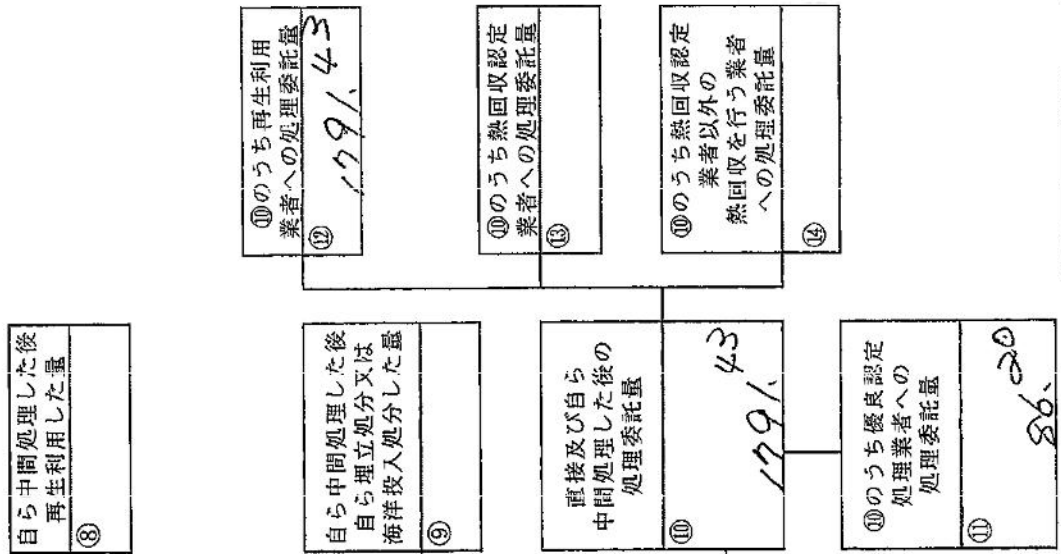 自ら中間処理した後
再生利用した量
⑧
自ら中間処理した後
自ら埋立処分又は
海洋投入処分した量
⑨
直接及び自ら
中間処理した後の
処理委託量
⑩
1791.43
⑩のうち優良認定
処理業者への
処理委託量
⑪
86.20
⑩のうち再生利用
業者への処理委託量
⑫
1791.43
⑩のうち熱回収認定
業者への処理委託量
⑬
⑩のうち熱回収認定
業者以外の
熱回収を行う業者
への処理委託量
⑭